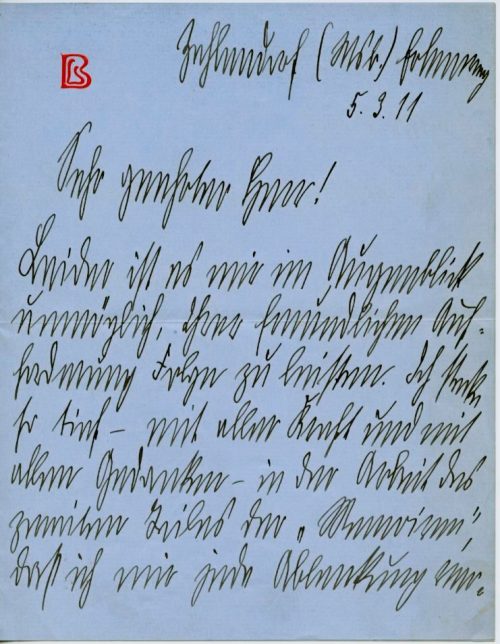 Zehlendorf (Wsb.)
5.3.11
Sehr geehrter Herr!
Leider ist es mir im Augenblick
unmöglich, Ihrer freundlichen Auf-
forderung Folge zu leisten. Ich stecke
so tief – mit aller Kraft und mit
allen Gedanken – in der Arbeit des
zweiten Teiles der „Memoiren",
daß ich mir jede Ablenkung ver-